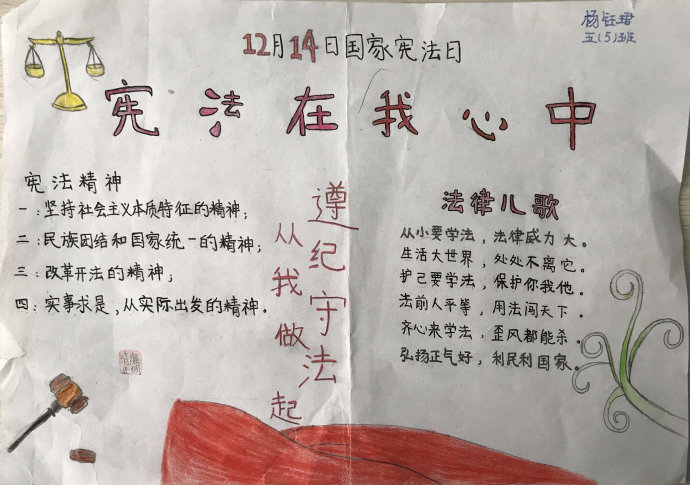 杨钰珺
五(5)班
12月14日国家宪法日
宪法在我心中
宪法精神
一:坚持社会主义本质特征的精神;
二:民族团结和国家统一的精神;
三:改革开法的精神;
四:实事求是,从实际出发的精神。
遵纪守法
从我做起
法律儿歌
从小要学法,法律威力大。
生活大世界,处处不离它。
护己要学法,保护你我他。
法前人平等,用法闯天下。
齐心来学法,歪风都能杀。
弘扬正气好,利民利国家。